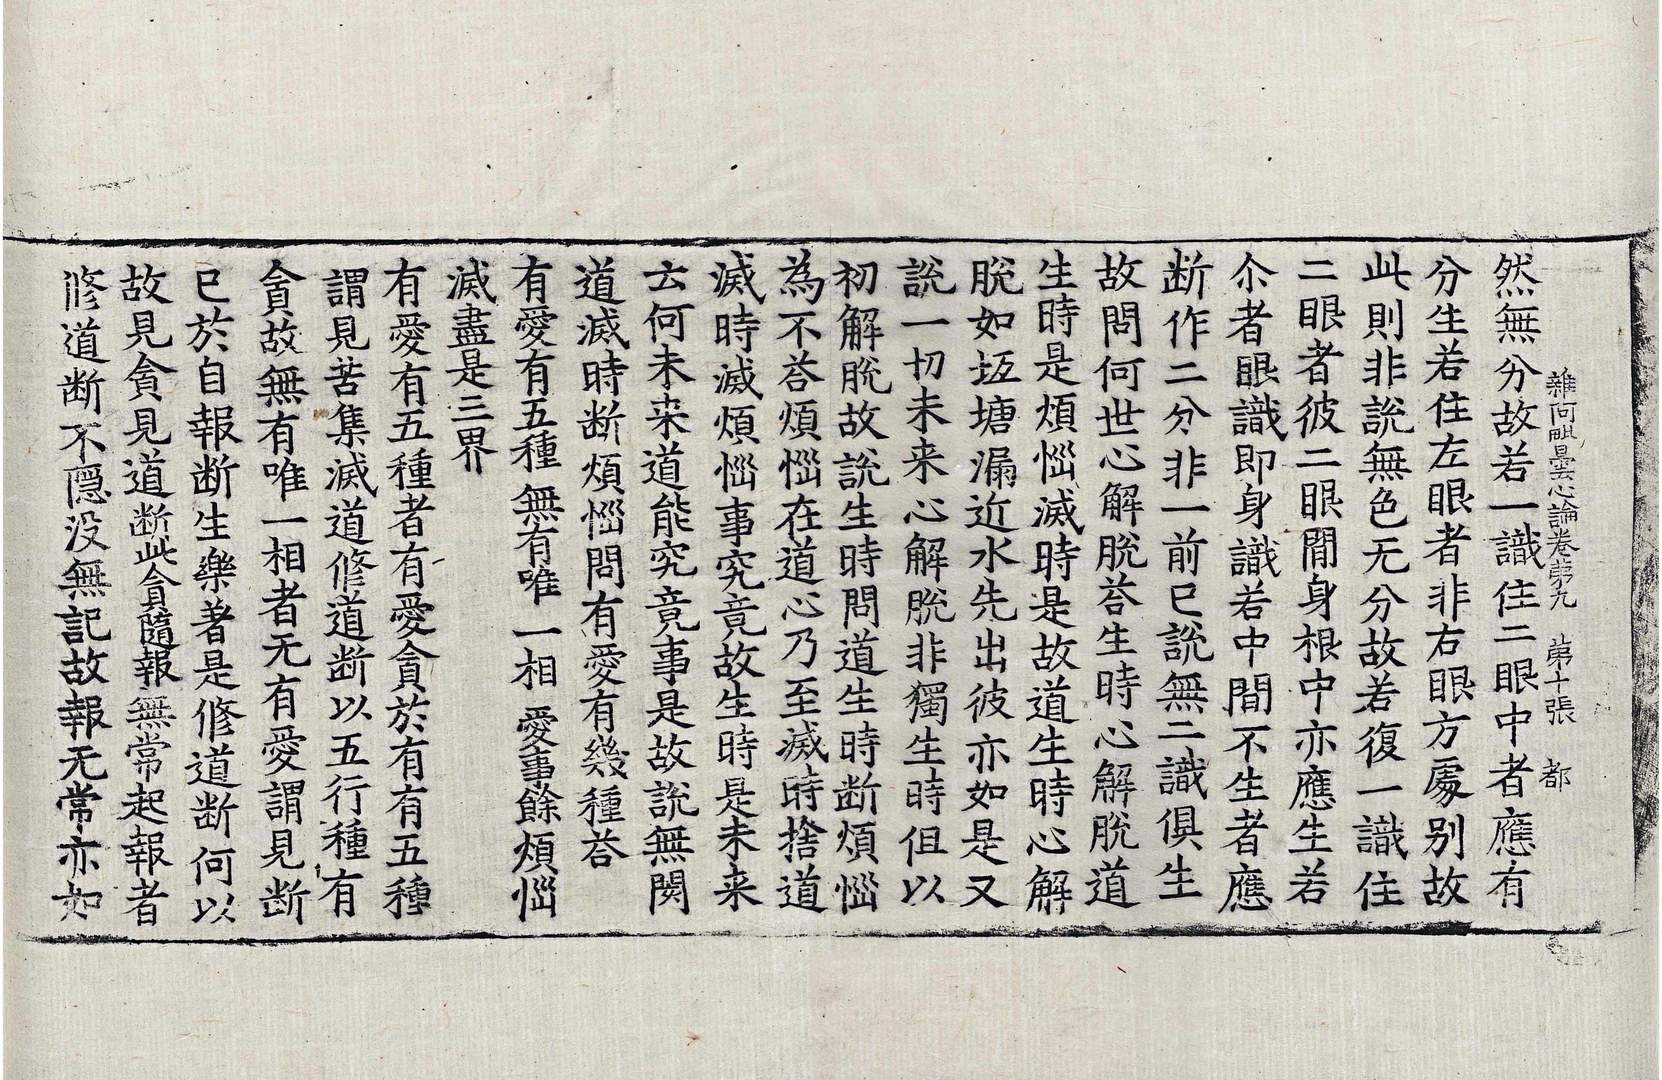 雜阿毗曇心論卷第九　第十張　都
然無分故若一識住二眼中者應有
分生若住左眼者非右眼方處别故
此則非說無色无分故若復一識住
二眼者彼二眼間身根中亦應生若
尒者眼識即身識若中間不生者應
断作二分非一前已說無二識俱生
故問何世心解脫荅生時心解脫道
生時是煩惱滅時是故道生時心解
脫如坘塘漏近水先出彼亦如是又
說一切未来心解脫非獨生時但以
初解脫故說生時問道生時断煩惱
為不荅煩惱在道心乃至滅時捨道
滅時滅煩惱事究竟故生時是未来
云何未来道能究竟事是故說無閡
道滅時断煩惱問有愛有幾種荅
有愛有五種　無有唯一相　愛事餘煩惱
滅盡是三界
有愛有五種者有愛貪於有有五種
謂見苦集滅道修道断以五行種有
貪故無有唯一相者无有愛謂見断
已於自報断生樂著是修道断何以
故見貪見道断此貪隨報無常起報者
修道断不隱没無記故報无常亦如